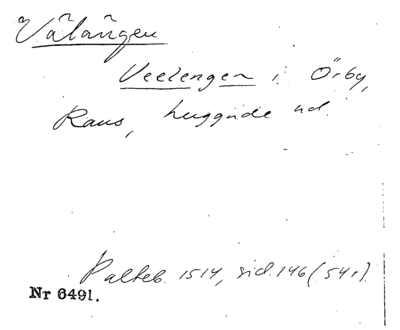 Välängen
Veelengen i Örby,
Raus, Luggude hd.
Palteb. 1514, sid. 146 (54r).
Nr 6491.